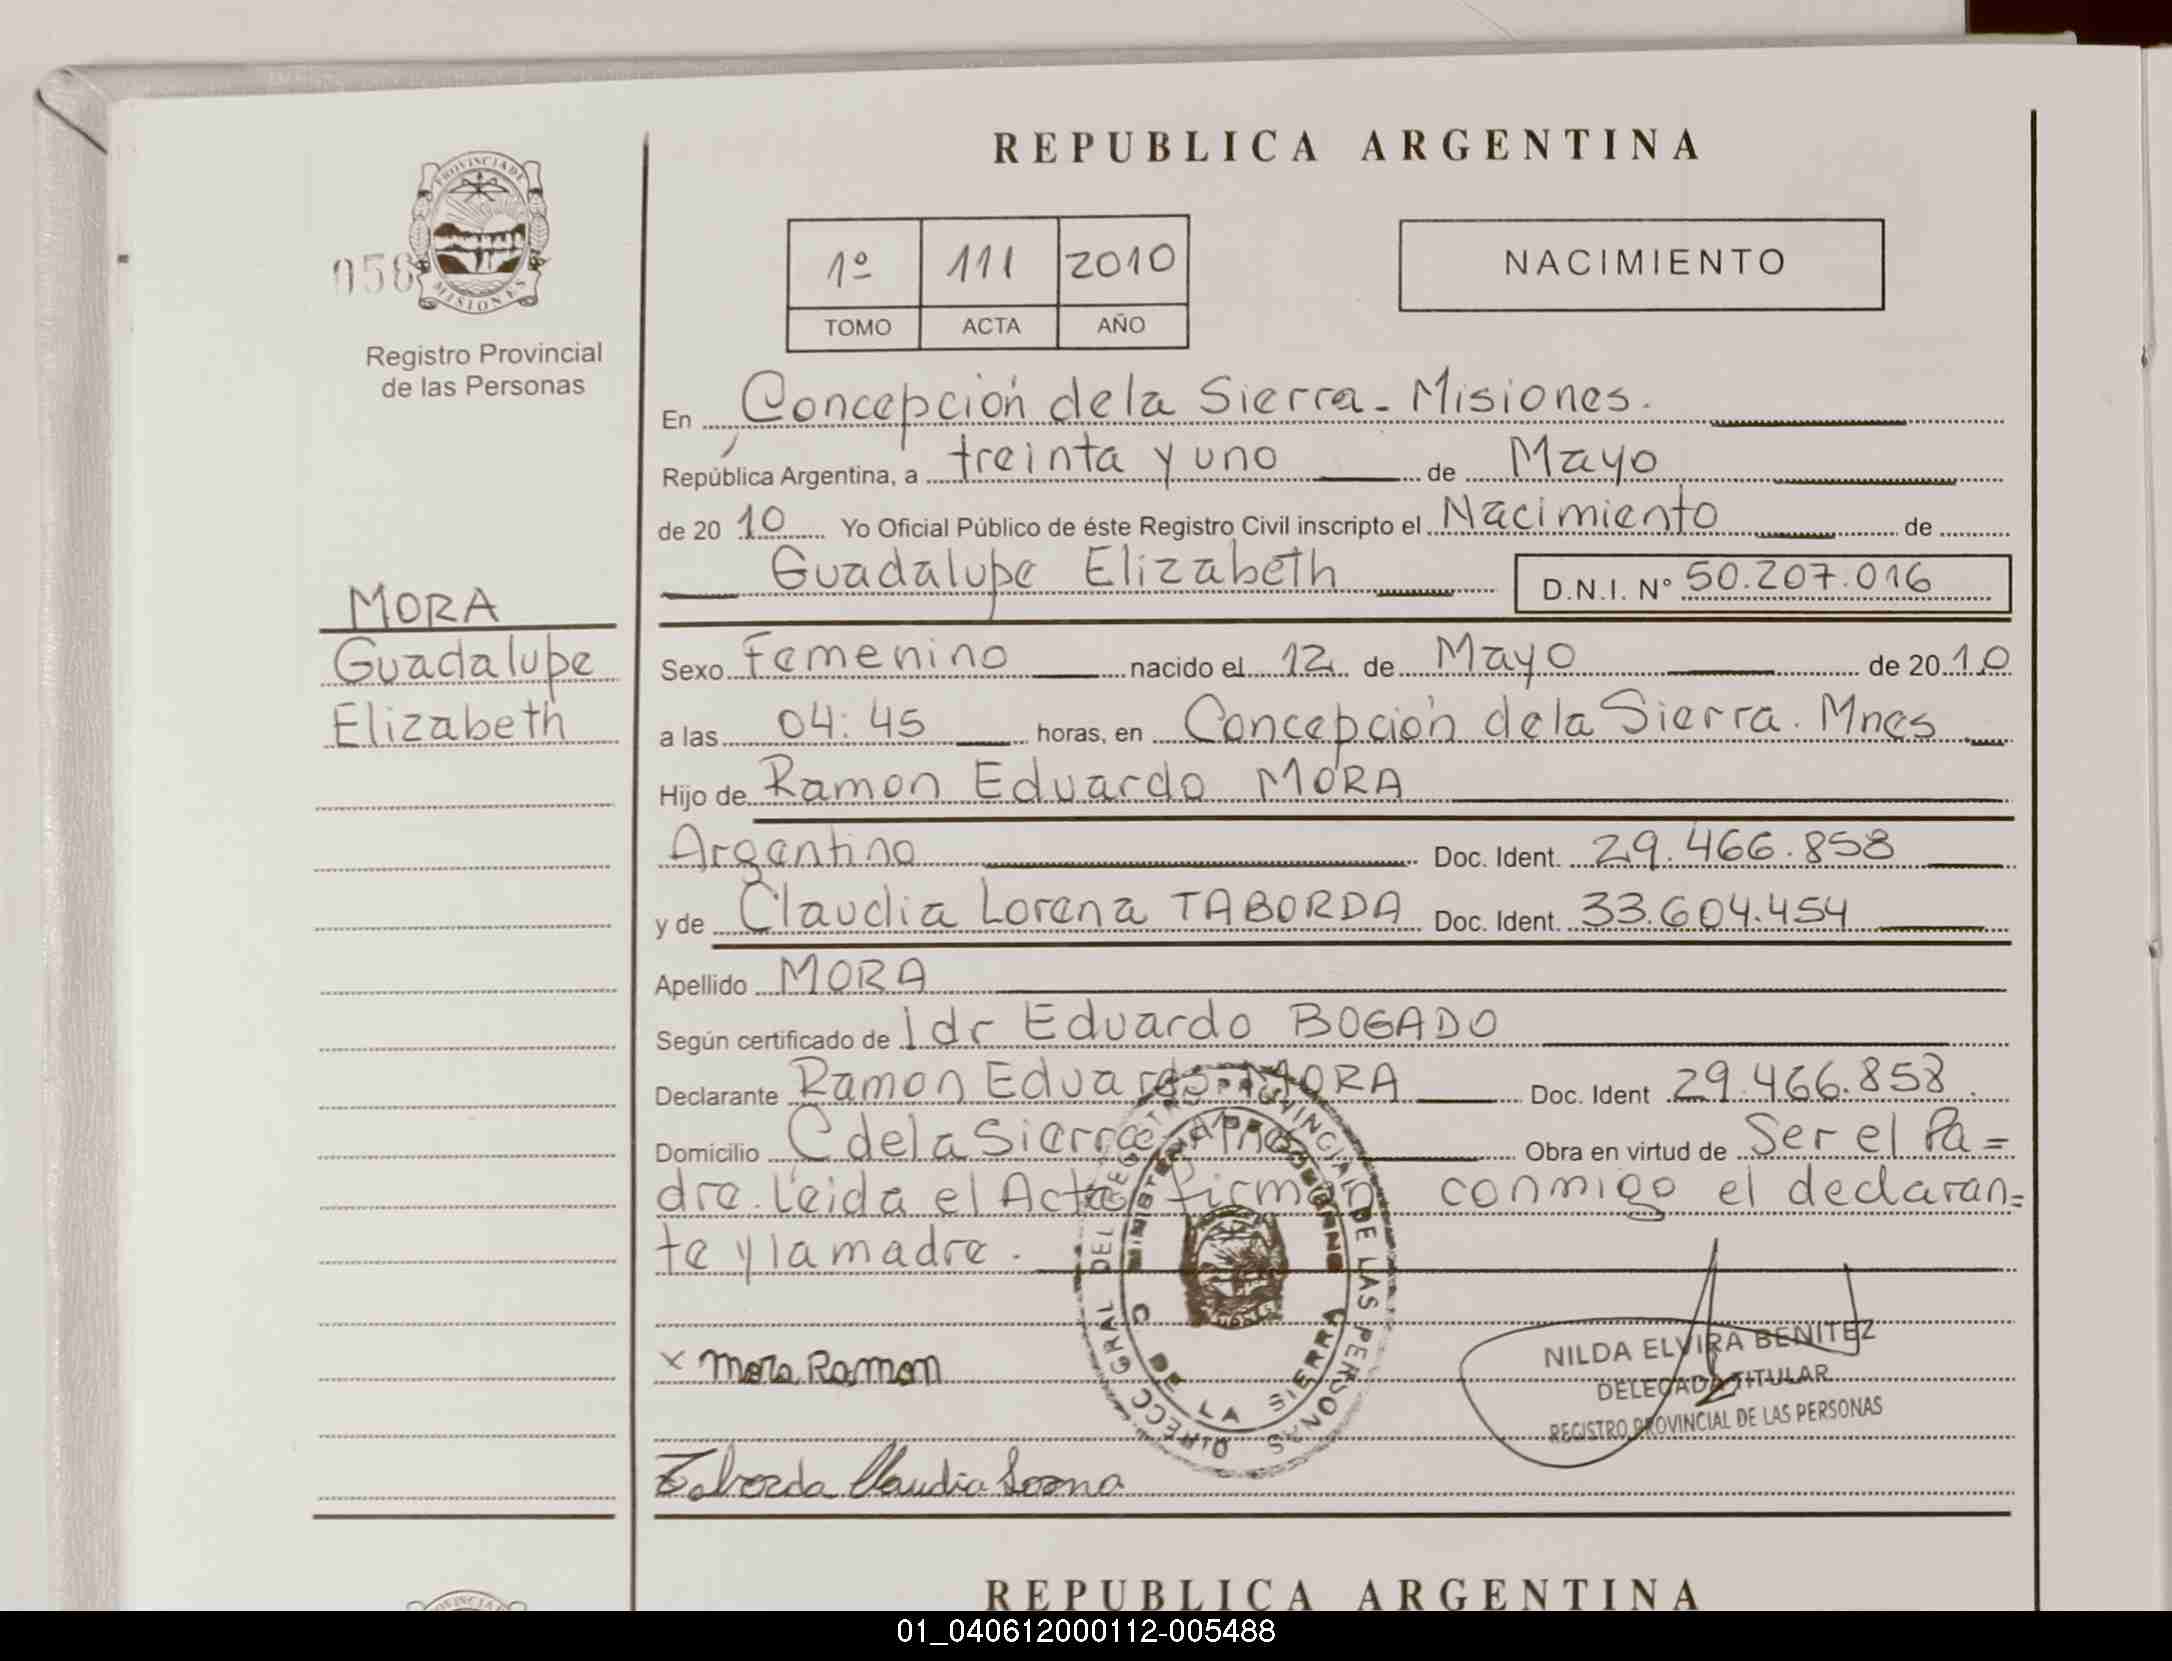 REPUBLICA ARGENTINA
PROVINCIA DE MISIONES
056
Registro Provincial
de las Personas
1º 111 2010
TOMO ACTA AÑO
NACIMIENTO
En Concepción de la Sierra - Misiones.
República Argentina, a treinta y uno de Mayo
de 20 10 Yo Oficial Público de éste Registro Civil inscripto el Nacimiento de
Guadalupe Elizabeth D.N.I. Nº 50.207.016
MORA
Guadalupe
Elizabeth
Sexo Femenino nacido el 12 de Mayo de 20 10
a las 04:45 horas, en Concepción de la Sierra. Mnes
Hijo de Ramon Eduardo MORA
Argentino Doc. Ident. 29.466.858
y de Claudia Lorena TABORDA Doc. Ident. 33.604.454
Apellido MORA
Según certificado de 1dr Eduardo BOGADO
Declarante Ramon Eduardo MORA Doc. Ident 29.466.858.
Domicilio C de la Sierra Mnes Obra en virtud de Ser el Pa=
dre. Leida el Acta firman conmigo el declaran=
te y la madre.
DIRECC GRAL DEL REGISTRO PROVINCIAL DE LAS PERSONAS
MINISTERIO DE GOBIERNO
C DE LA SIERRA
x Mora Ramon
NILDA ELVIRA BENITEZ
DELEGADA TITULAR
REGISTRO PROVINCIAL DE LAS PERSONAS
Taborda Claudia Lorena
REPUBLICA ARGENTINA
01_040612000112-005488